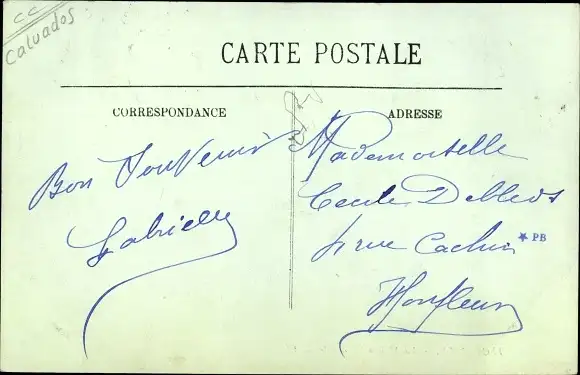 CC
Calvados
CARTE POSTALE
CORRESPONDANCE
ADRESSE
Bon Souvenir
Gabrielle
Mademoiselle
Cecile
rue Cachin
PB
Honfleur